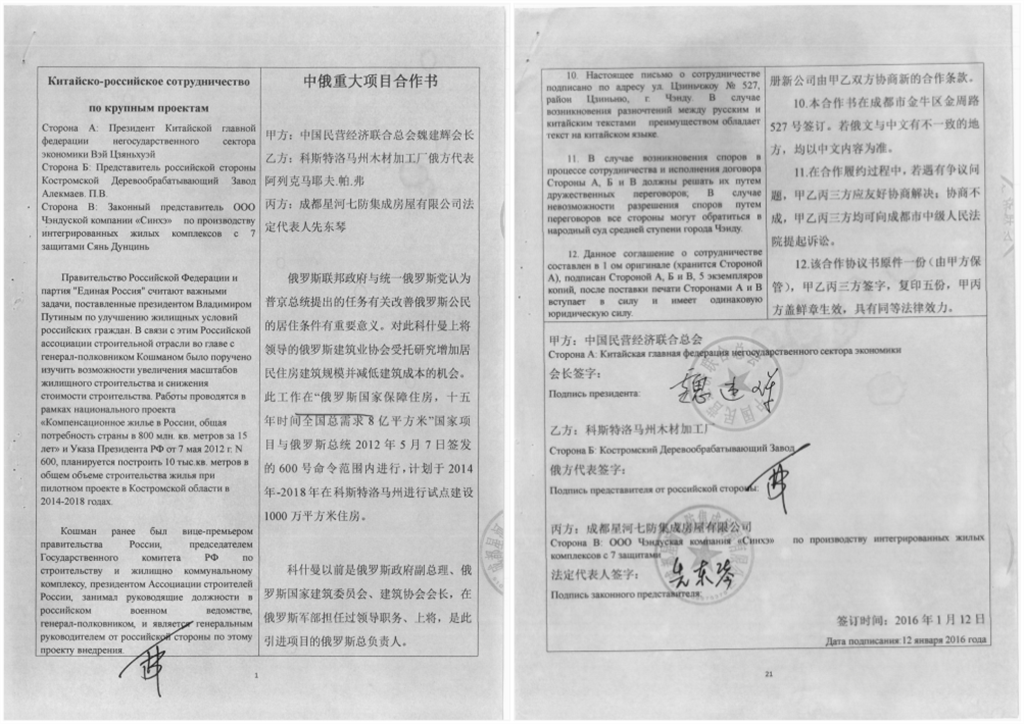 Китайско-российское сотрудничество
по крупным проектам
Сторона А: Президент Китайской главной
федерации негосударственного сектора
экономики Вэй Цзяньхуэй
Сторона Б: Представитель российской стороны
Костромской Деревообрабатывающий Завод
Алекмаев. П.В.
Сторона В: Законный представитель ООО
Чэндуской компании «Синхэ» по производству
интегрированных жилых комплексов с 7
защитами Сянь Дунцинь
Правительство Российской Федерации и
партия "Единая Россия" считают важными
задачи, поставленные президентом Владимиром
Путиным по улучшению жилищных условий
российских граждан. В связи с этим Российской
ассоциации строительной отрасли во главе с
генерал-полковником Кошманом было поручено
изучить возможности увеличения масштабов
жилищного строительства и снижения
стоимости строительства. Работы проводятся в
рамках национального проекта
«Компенсационное жилье в России, общая
потребность страны в 800 млн. кв. метров за 15
лет» и Указа Президента РФ от 7 мая 2012 г. N
600, планируется построить 10 тыс.кв. метров в
общем объеме строительства жилья при
пилотном проекте в Костромской области в
2014-2018 годах.
Кошман ранее был вице-премьером
правительства России, председателем
Государственного комитета РФ по
строительству и жилищно коммунальному
комплексу, президентом Ассоциации строителей
России, занимал руководящие должности в
российском военном ведомстве,
генерал-полковником, и является генеральным
руководителем от российской стороны по этому
проекту внедрения.
中俄重大项目合作书
甲方：中国民营经济联合总会魏建辉会长
乙方：科斯特洛马州木材加工厂俄方代表
阿列克马耶夫.帕.弗
丙方：成都星河七防集成房屋有限公司法
定代表人先东琴
俄罗斯联邦政府与统一俄罗斯党认为
普京总统提出的任务有关改善俄罗斯公民
的居住条件有重要意义。对此科什曼上将
领导的俄罗斯建筑业协会受托研究增加居
民住房建筑规模并减低建筑成本的机会。
此工作在“俄罗斯国家保障住房，十五
年时间全国总需求 8 亿平方米”国家项
目与俄罗斯总统 2012 年 5 月 7 日签发
的 600 号命令范围内进行，计划于 2014
年-2018 年在科斯特洛马州进行试点建设
1000 万平方米住房。
科什曼以前是俄罗斯政府副总理、俄
罗斯国家建筑委员会、建筑协会会长，在
俄罗斯军部担任过领导职务、上将，是此
引进项目的俄罗斯总负责人。
1
10. Настоящее письмо о сотрудничестве
подписано по адресу ул. Цзиньчжоу № 527,
район Цзиньню, г. Чэнду. В случае
возникновения разночтений между русским и
китайским текстами преимуществом обладает
текст на китайском языке.
11. В случае возникновения споров в
процессе сотрудничества и исполнения договора
Стороны А, Б и В должны решать их путем
дружественных переговоров; В случае
невозможности разрешения споров путем
переговоров все стороны могут обратиться в
народный суд средней ступени города Чэнду.
12. Данное соглашение о сотрудничестве
составлен в 1 ом оригинале (хранится Стороной
А), подписан Стороной А, Б и В, 5 экземпляров
копий, после поставки печати Сторонами А и В
вступает в силу и имеет одинаковую
юридическую силу.
册新公司由甲乙双方协商新的合作条款。
10.本合作书在成都市金牛区金周路
527 号签订。若俄文与中文有不一致的地
方，均以中文内容为准。
11.在合作履约过程中，若遇有争议问
题，甲乙丙三方应友好协商解决；协商不
成，甲乙丙三方均可向成都市中级人民法
院提起诉讼。
12.该合作协议书原件一份（由甲方保
管），甲乙丙三方签字，复印五份，甲丙
方盖鲜章生效，具有同等法律效力。
甲方：中国民营经济联合总会
Сторона А: Китайская главная федерация негосударственного сектора экономики
会长签字：
Подпись президента:
乙方：科斯特洛马州木材加工厂
Сторона Б: Костромский Деревообрабатывающий Завод
俄方代表签字：
Подпись представителя от российской стороны:
丙方：成都星河七防集成房屋有限公司
Сторона В: ООО Чэндуская компания «Синхэ» по производству интегрированных жилых
комплексов с 7 защитами
法定代表人签字：先东琴
Подпись законного представителя:
签订时间：2016 年 1 月 12 日
Дата подписания: 12 января 2016 года
21